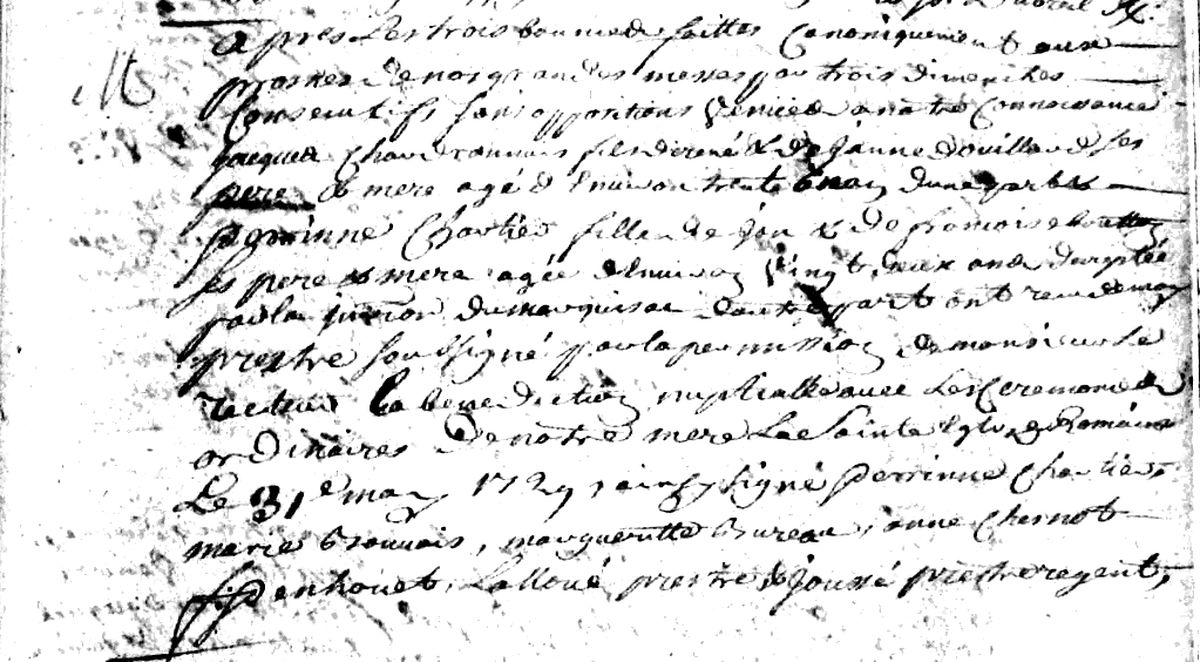 M
apres les trois bannies faittes Canoniquement aux
prosnes de nos grandes messes par trois dimenches
Consecutifs sans oppositions venües a notre Connoissance
jacques fils de rené & de janne douillard ses
pere & mere agé d'environ trente & dune part &
perrinne Chartier fille de jan & de francoise
ses pere & mere agée denviron vingt deux ans
par la du marquisat dautre part ont receu de moy
prestre soussigné par la permission de monsieur le
recteur la benediction nuptialle avec les Ceremonies
ordinaires de notre mere la Sainte Eglise Romaine
Le 31e may 1729 ainsy signé perrinne Chartier
marie Bsouvais, margueritte Bureau, anne Chesnot
penhouet, Lalloué prestre & joussé prestre regent,